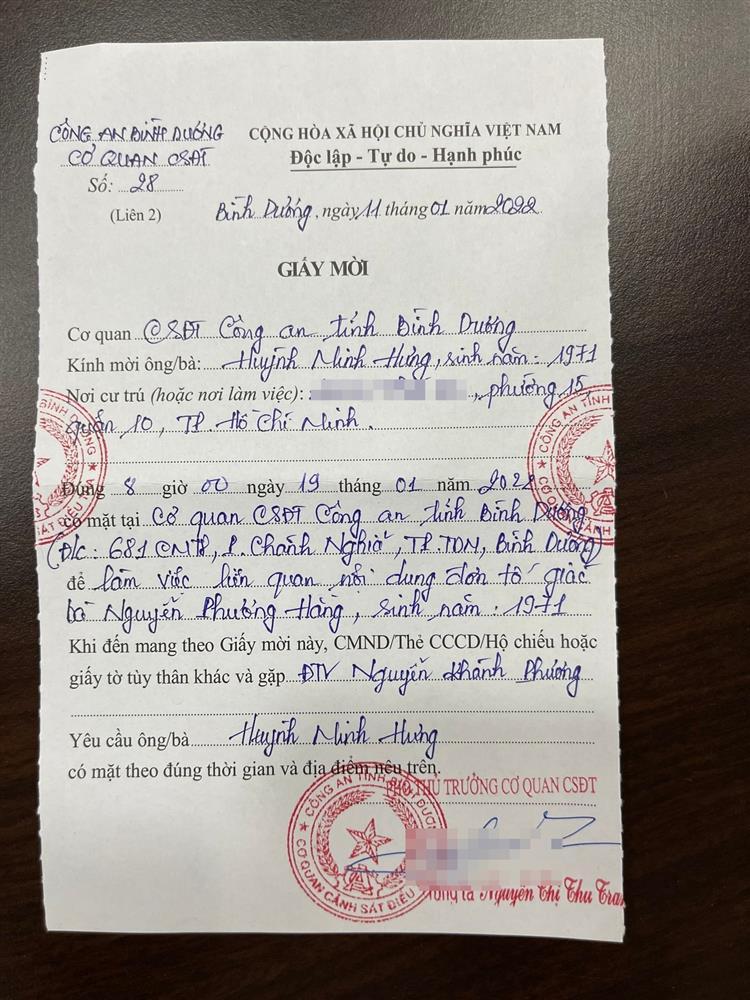 CÔNG AN BÌNH DƯƠNG
CƠ QUAN CSĐT
Số: 28
(Liên 2)
CỘNG HÒA XÃ HỘI CHỦ NGHĨA VIỆT NAM
Độc lập - Tự do - Hạnh phúc
Bình Dương, ngày 11 tháng 01 năm 2022
GIẤY MỜI
Cơ quan CSĐT Công an tỉnh Bình Dương
Kính mời ông/bà: Huỳnh Minh Hưng, sinh năm: 1971
Nơi cư trú (hoặc nơi làm việc): , phường 15,
quận 10, TP. Hồ Chí Minh.
Đúng 8 giờ 00 ngày 19 tháng 01 năm 2022
có mặt tại Cơ quan CSĐT Công an tỉnh Bình Dương
(Đ/c: 681 CMT8, P. Chánh Nghĩa, TP. TDM, Bình Dương)
để làm việc liên quan nội dung đơn tố giác
bà Nguyễn Phương Hằng, sinh năm: 1971
Khi đến mang theo Giấy mời này, CMND/Thẻ CCCD/Hộ chiếu hoặc
giấy tờ tùy thân khác và gặp ĐTV Nguyễn Khánh Phương
Yêu cầu ông/bà Huỳnh Minh Hưng
có mặt theo đúng thời gian và địa điểm nêu trên.
PHÓ THỦ TRƯỞNG CƠ QUAN CSĐT
CÔNG AN TỈNH BÌNH DƯƠNG
CƠ QUAN CẢNH SÁT ĐIỀU
Nguyễn Thị Thu Tran